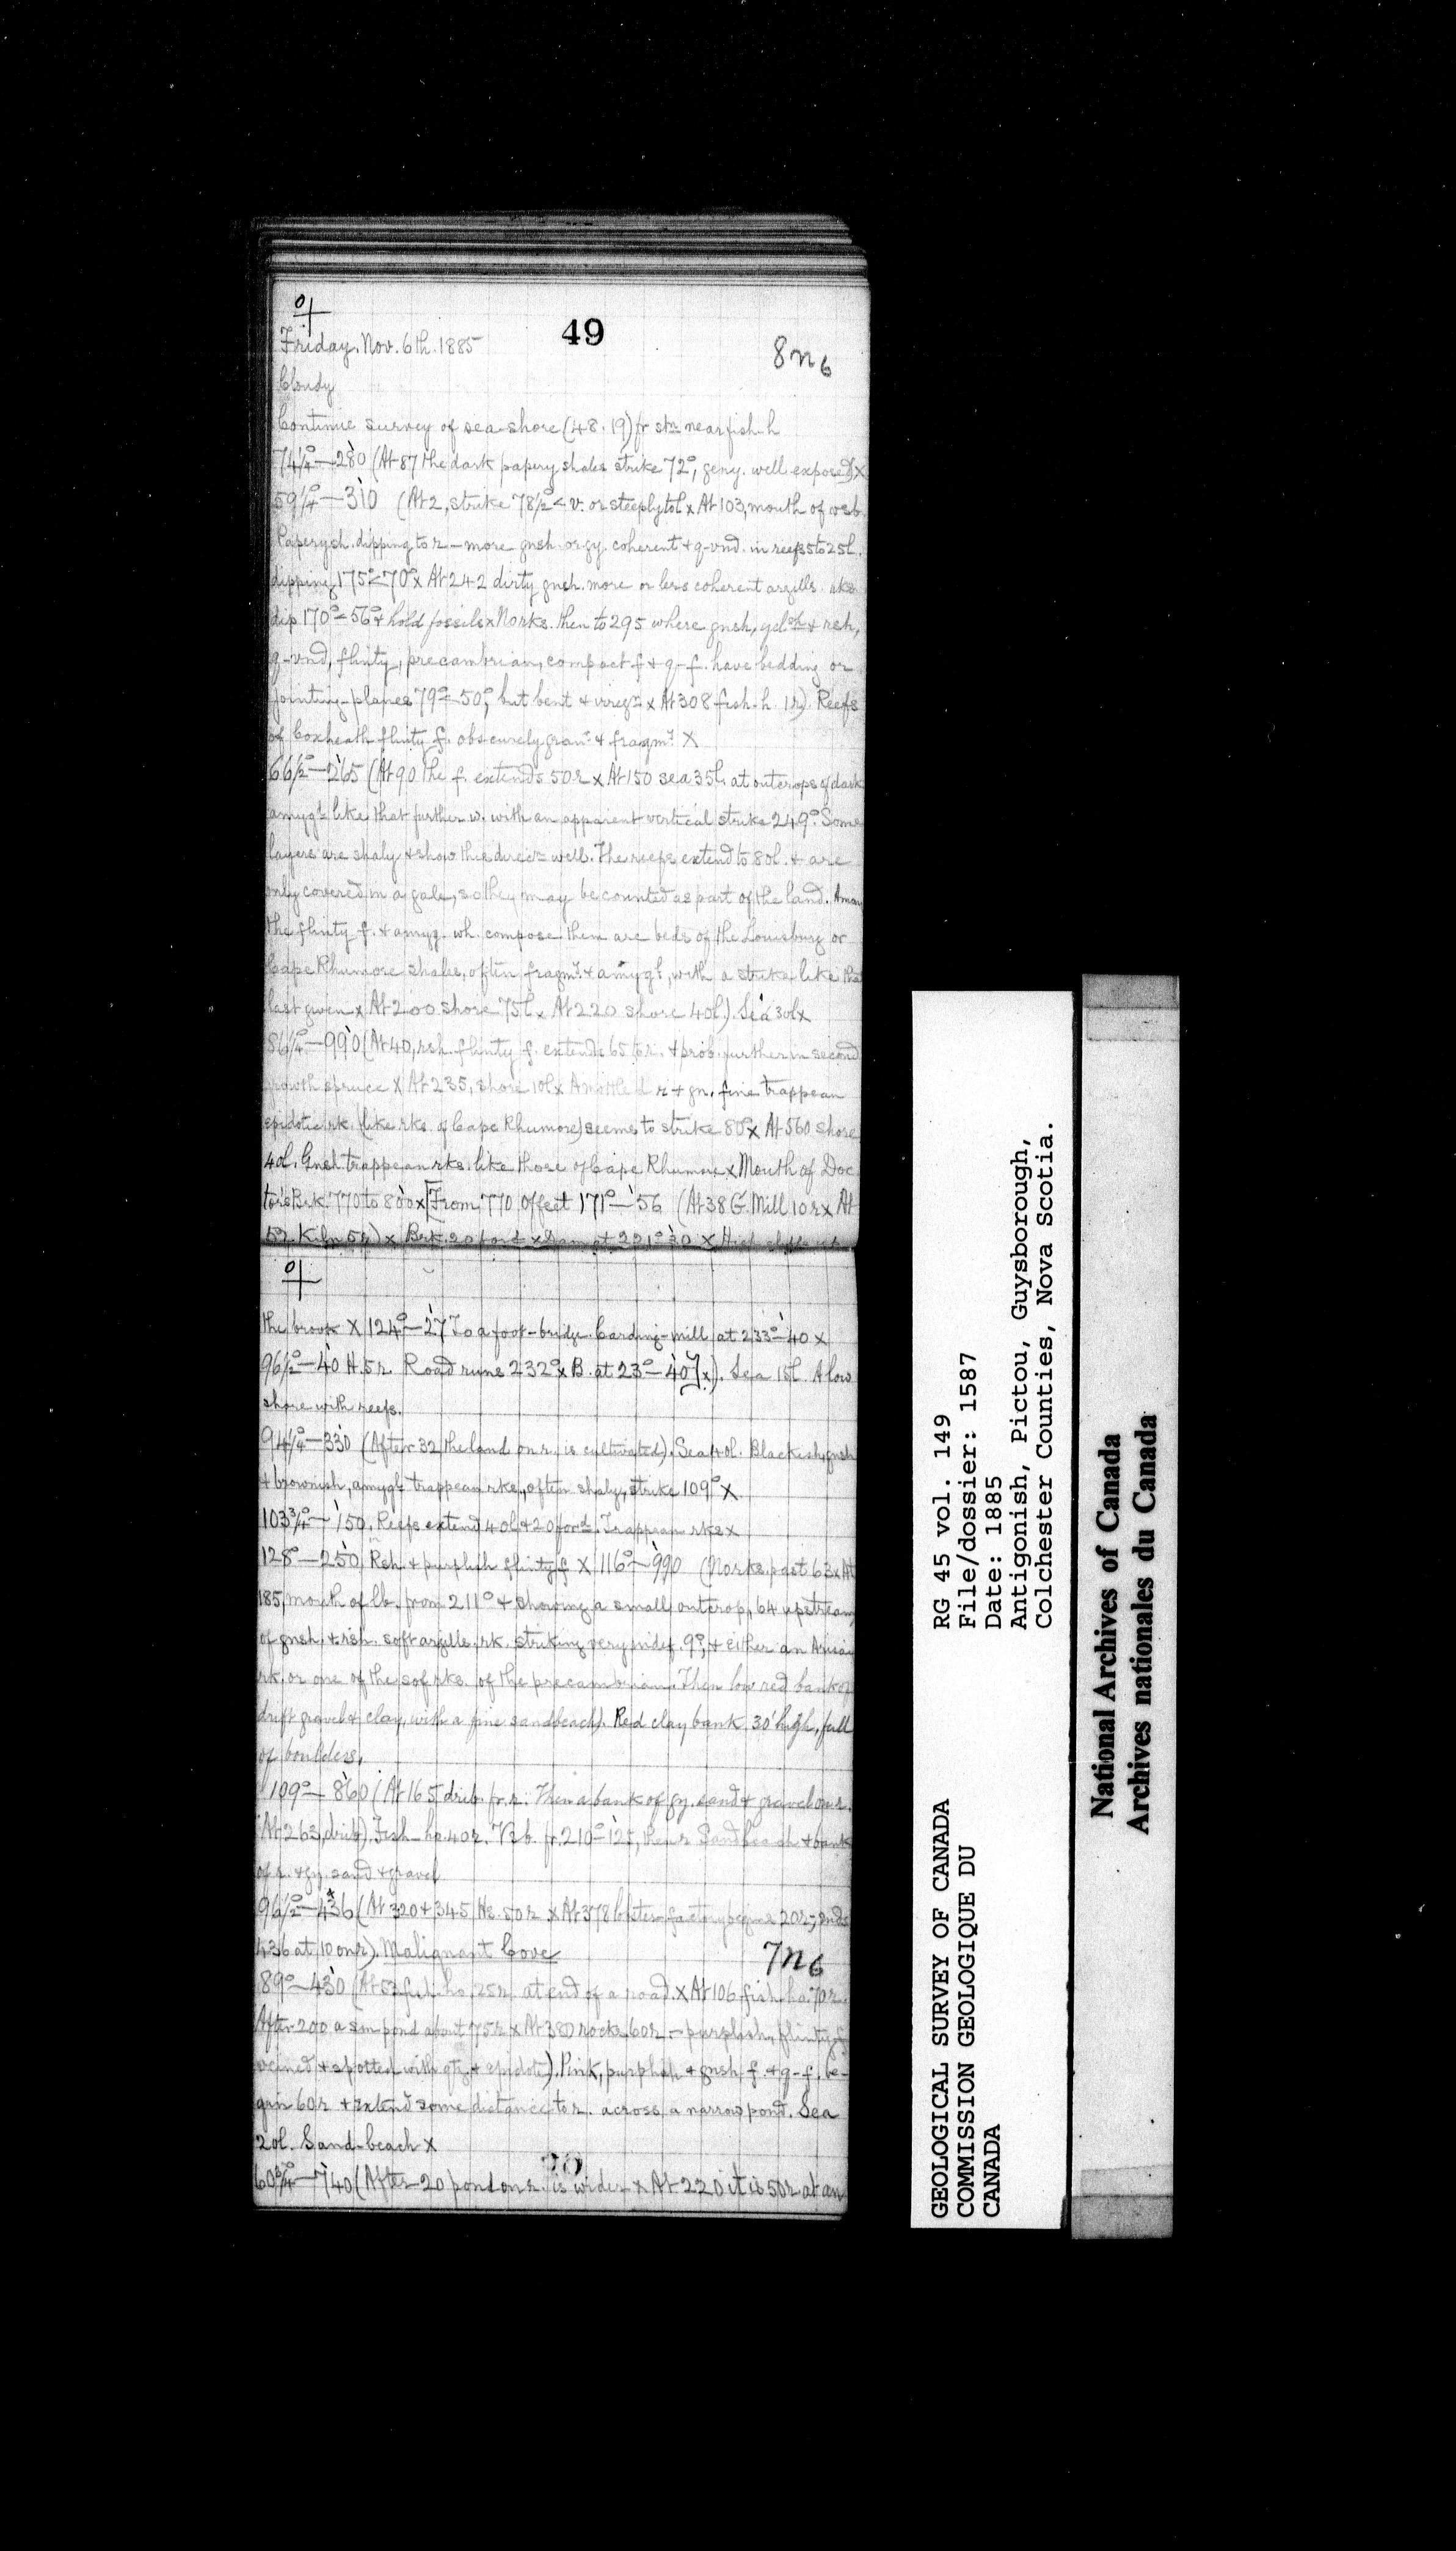 49
Friday. Nov. 6th. 1885
8n6
Cloudy
Continue survey of sea-shore (48.19) fr stn near fish-h
74¼°—280 (At 87 the dark papery shales strike 72°, geny. well exposed) x
59¼°—310 (At 2, strike 78½° < v. or steeply to l x At 103, mouth of vsb.
Papery sh. dipping to r — more gnsh. or gy. coherent & q-vnd. in reefs 5 to 25 l.
dipping 175°<70° x At 242 dirty gnsh. more or less coherent argills.
dip 170°<56° & hold fossils x No rks. then to 295 where gnsh, & rsh,
q-vnd, flinty, precambrian, compact f & q-f. have bedding or
jointing-planes 79°<50°, but bent & x At 308 fish-h 1r) Reefs
of Coxheath flinty f. obscurely gran. & fragm. X
66½°—265 (At 90 the f. extends 50r x At 150 sea 35l. at outcrops of dark
amygl like that further w. with an apparent vertical strike 249°. Some
layers are shaly & show this direcn well. The reefs extend to 80l. & are
only covered in a gale, so they may be counted as part of the land. Among
the flinty f. & amyg. wh. compose them are beds of the Louisburg or
Cape Rhumore shales, often fragml. & amygl, with a strike like that
last given x At 200 shore 75l x At 220 shore 40l). Sea 30l x
86¼°—990 (At 40, rsh. flinty f. extends 65 to r. & prob. further in second
growth spruce X At 235, shore 10l x A mottled r & gn. fine trappean
epidotic rk. (like rks. of Cape Rhumore) seems to strike 80° x At 560 shore
40l. Gnsh trappean rks. like those of Cape Rhumore x Mouth of Doc
tor's Brk. 770 to 800 x [From 770 Offset 171°—56 (At 38 G. Mill 10r x At
52 Kiln 5r) x Brk. 20 ford x Dam at 221° 30 x High cliffs
the brook X 124°—27 To a foot-bridge. Carding-mill at 233°—40 x
96½°—40 H. 5r. Road runs 232° x B. at 23°—40] x). Sea 15l. A low
shore with reefs.
94¼°—330 (After 32 the land on r. is cultivated). Sea 40l. Blackish, gnsh
& brownish, amygl trappean rks., often shaly, strike 109° X
103¾°—150. Reefs extend 40l & 20 ford. Trappean rks x
128°—250 Rsh & purplish flinty f X 116°—990 (No rks. past 63 x At
185, mouth of lb. from 211° & showing a small outcrop, 64 upstream,
of gnsh. & rsh. soft argills. rk. striking very indef. 9°, & either an Arisaig
rk. or one of the sof rks. of the precambrian. Then low red bank of
drift gravel & clay, with a fine sandbeach). Red clay bank 30' high, full
of boulders.
109°—860 (At 165 drib. fr. r. Then a bank of gy. sand & gravel on r.
At 263, drib). Fish-ho 40r. Vsb. fr. 210°—125, then r Sandbeach & bank
of r. & gy. sand & gravel
96½°—436 (At 320 & 345 Hs. 50r X At 378 lobster factory begins 20r, ends
436 at 10 on r). Malignant Cove
7n6
89°—430 (At 53 fish ho. 25r. at end of a road. X At 106 fish ho. 70r.
After 200 a sm pond about 75r x At 380 rocks 60r — purplish, flinty f,
veined & spotted with qtz & epidote). Pink, purplish & gnsh f. & q-f. be-
gin 60r & extend some distance to r. across a narrow pond. Sea
20l. Sand-beach X
60¾°—740 (After 20 pond on r. is wider x At 220 it is 50r at an
RG 45 vol. 149
File/dossier: 1587
Date: 1885
Antigonish, Pictou, Guysborough,
Colchester Counties, Nova Scotia.
GEOLOGICAL SURVEY OF CANADA
COMMISSION GEOLOGIQUE DU
CANADA
National Archives of Canada
Archives nationales du Canada